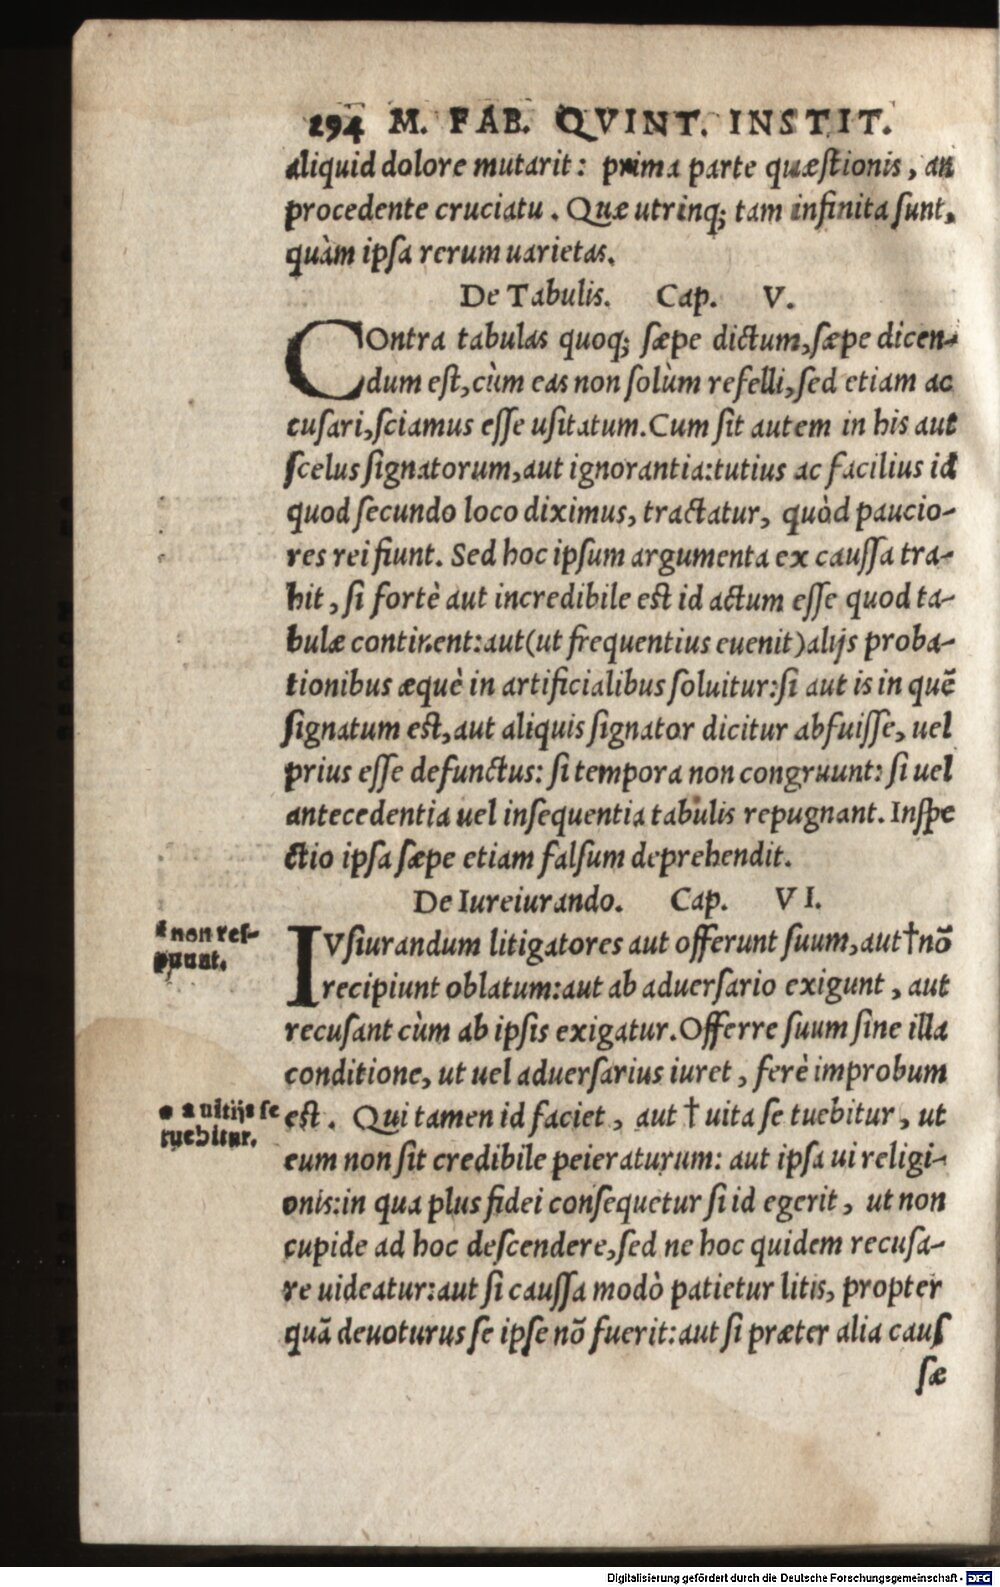 294 M. FAB. QVINT. INSTIT.
aliquid dolore mutarit: prima parte quæſtionis, an
procedente cruciatu. Quæ utrinq; tam infinita ſunt,
quàm ipſa rerum uarietas.
De Tabulis. Cap. V.
COntra tabulas quoq; ſæpe dictum, ſæpe dicen-
dum eſt, cùm eas non ſolùm refelli, ſed etiam ac
cuſari, ſciamus eſſe uſitatum. Cum ſit autem in his aut
ſcelus ſignatorum, aut ignorantia: tutius ac facilius id
quod ſecundo loco diximus, tractatur, quòd paucio-
res rei fiunt. Sed hoc ipſum argumenta ex cauſſa tra-
hit, ſi fortè aut incredibile eſt id actum eſſe quod ta-
bulæ continent: aut (ut frequentius euenit) alijs proba-
tionibus æquè in artificialibus ſoluitur: ſi aut is in quē
ſignatum eſt, aut aliquis ſignator dicitur abfuiſſe, uel
prius eſſe defunctus: ſi tempora non congruunt: ſi uel
antecedentia uel inſequentia tabulis repugnant. Inſpe
ctio ipſa ſæpe etiam falſum deprehendit.
De Iureiurando. Cap. VI.
† non reſ-
puunt.
IVſiurandum litigatores aut offerunt ſuum, aut † nō
recipiunt oblatum: aut ab aduerſario exigunt, aut
recuſant cùm ab ipſis exigatur. Offerre ſuum ſine illa
conditione, ut uel aduerſarius iuret, ferè improbum
a uitijs ſe
tuebitur.
eſt. Qui tamen id faciet, aut † uita ſe tuebitur, ut
eum non ſit credibile peieraturum: aut ipſa ui religi-
onis: in qua plus fidei conſequetur ſi id egerit, ut non
cupide ad hoc deſcendere, ſed ne hoc quidem recuſa-
re uideatur: aut ſi cauſſa modò patietur litis, propter
quā deuoturus ſe ipſe nō fuerit: aut ſi præter alia cauſ
ſæ
Digitalisierung gefördert durch die Deutsche Forschungsgemeinschaft - DFG